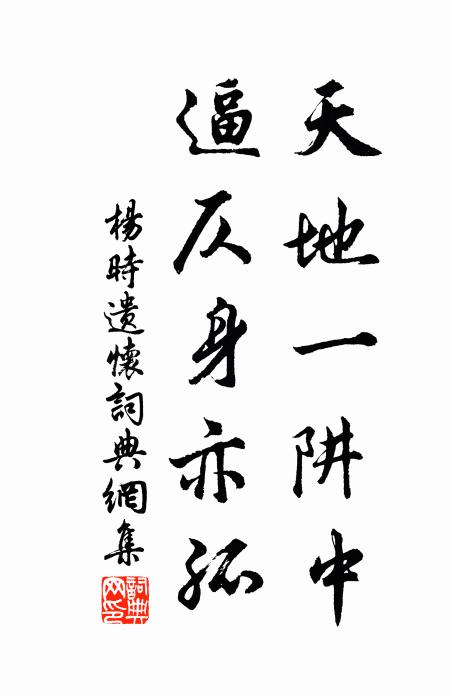 天地一阱中
逼仄身亦孤
楊時遣懷詞典網集
詞典网印